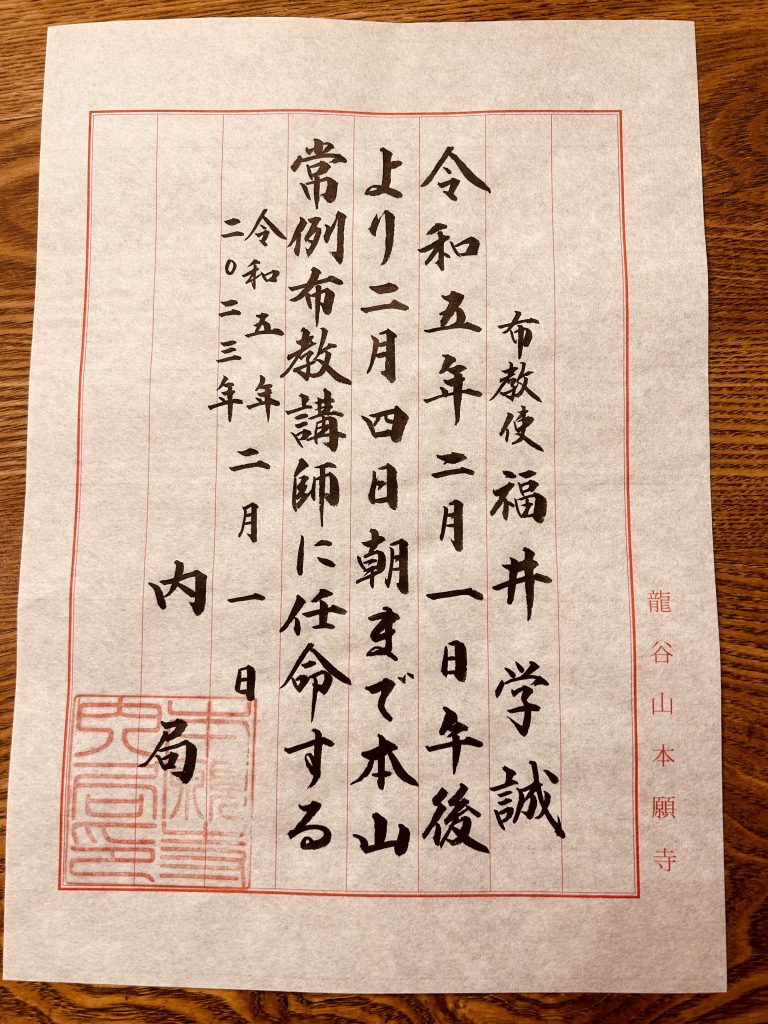 龍谷山本願寺
布教使 福井学誠
令和五年二月一日午後
より二月四日朝まで本山
常例布教講師に任命する
令和五年
二〇二三年
二月一日
内局
本願寺
内局印